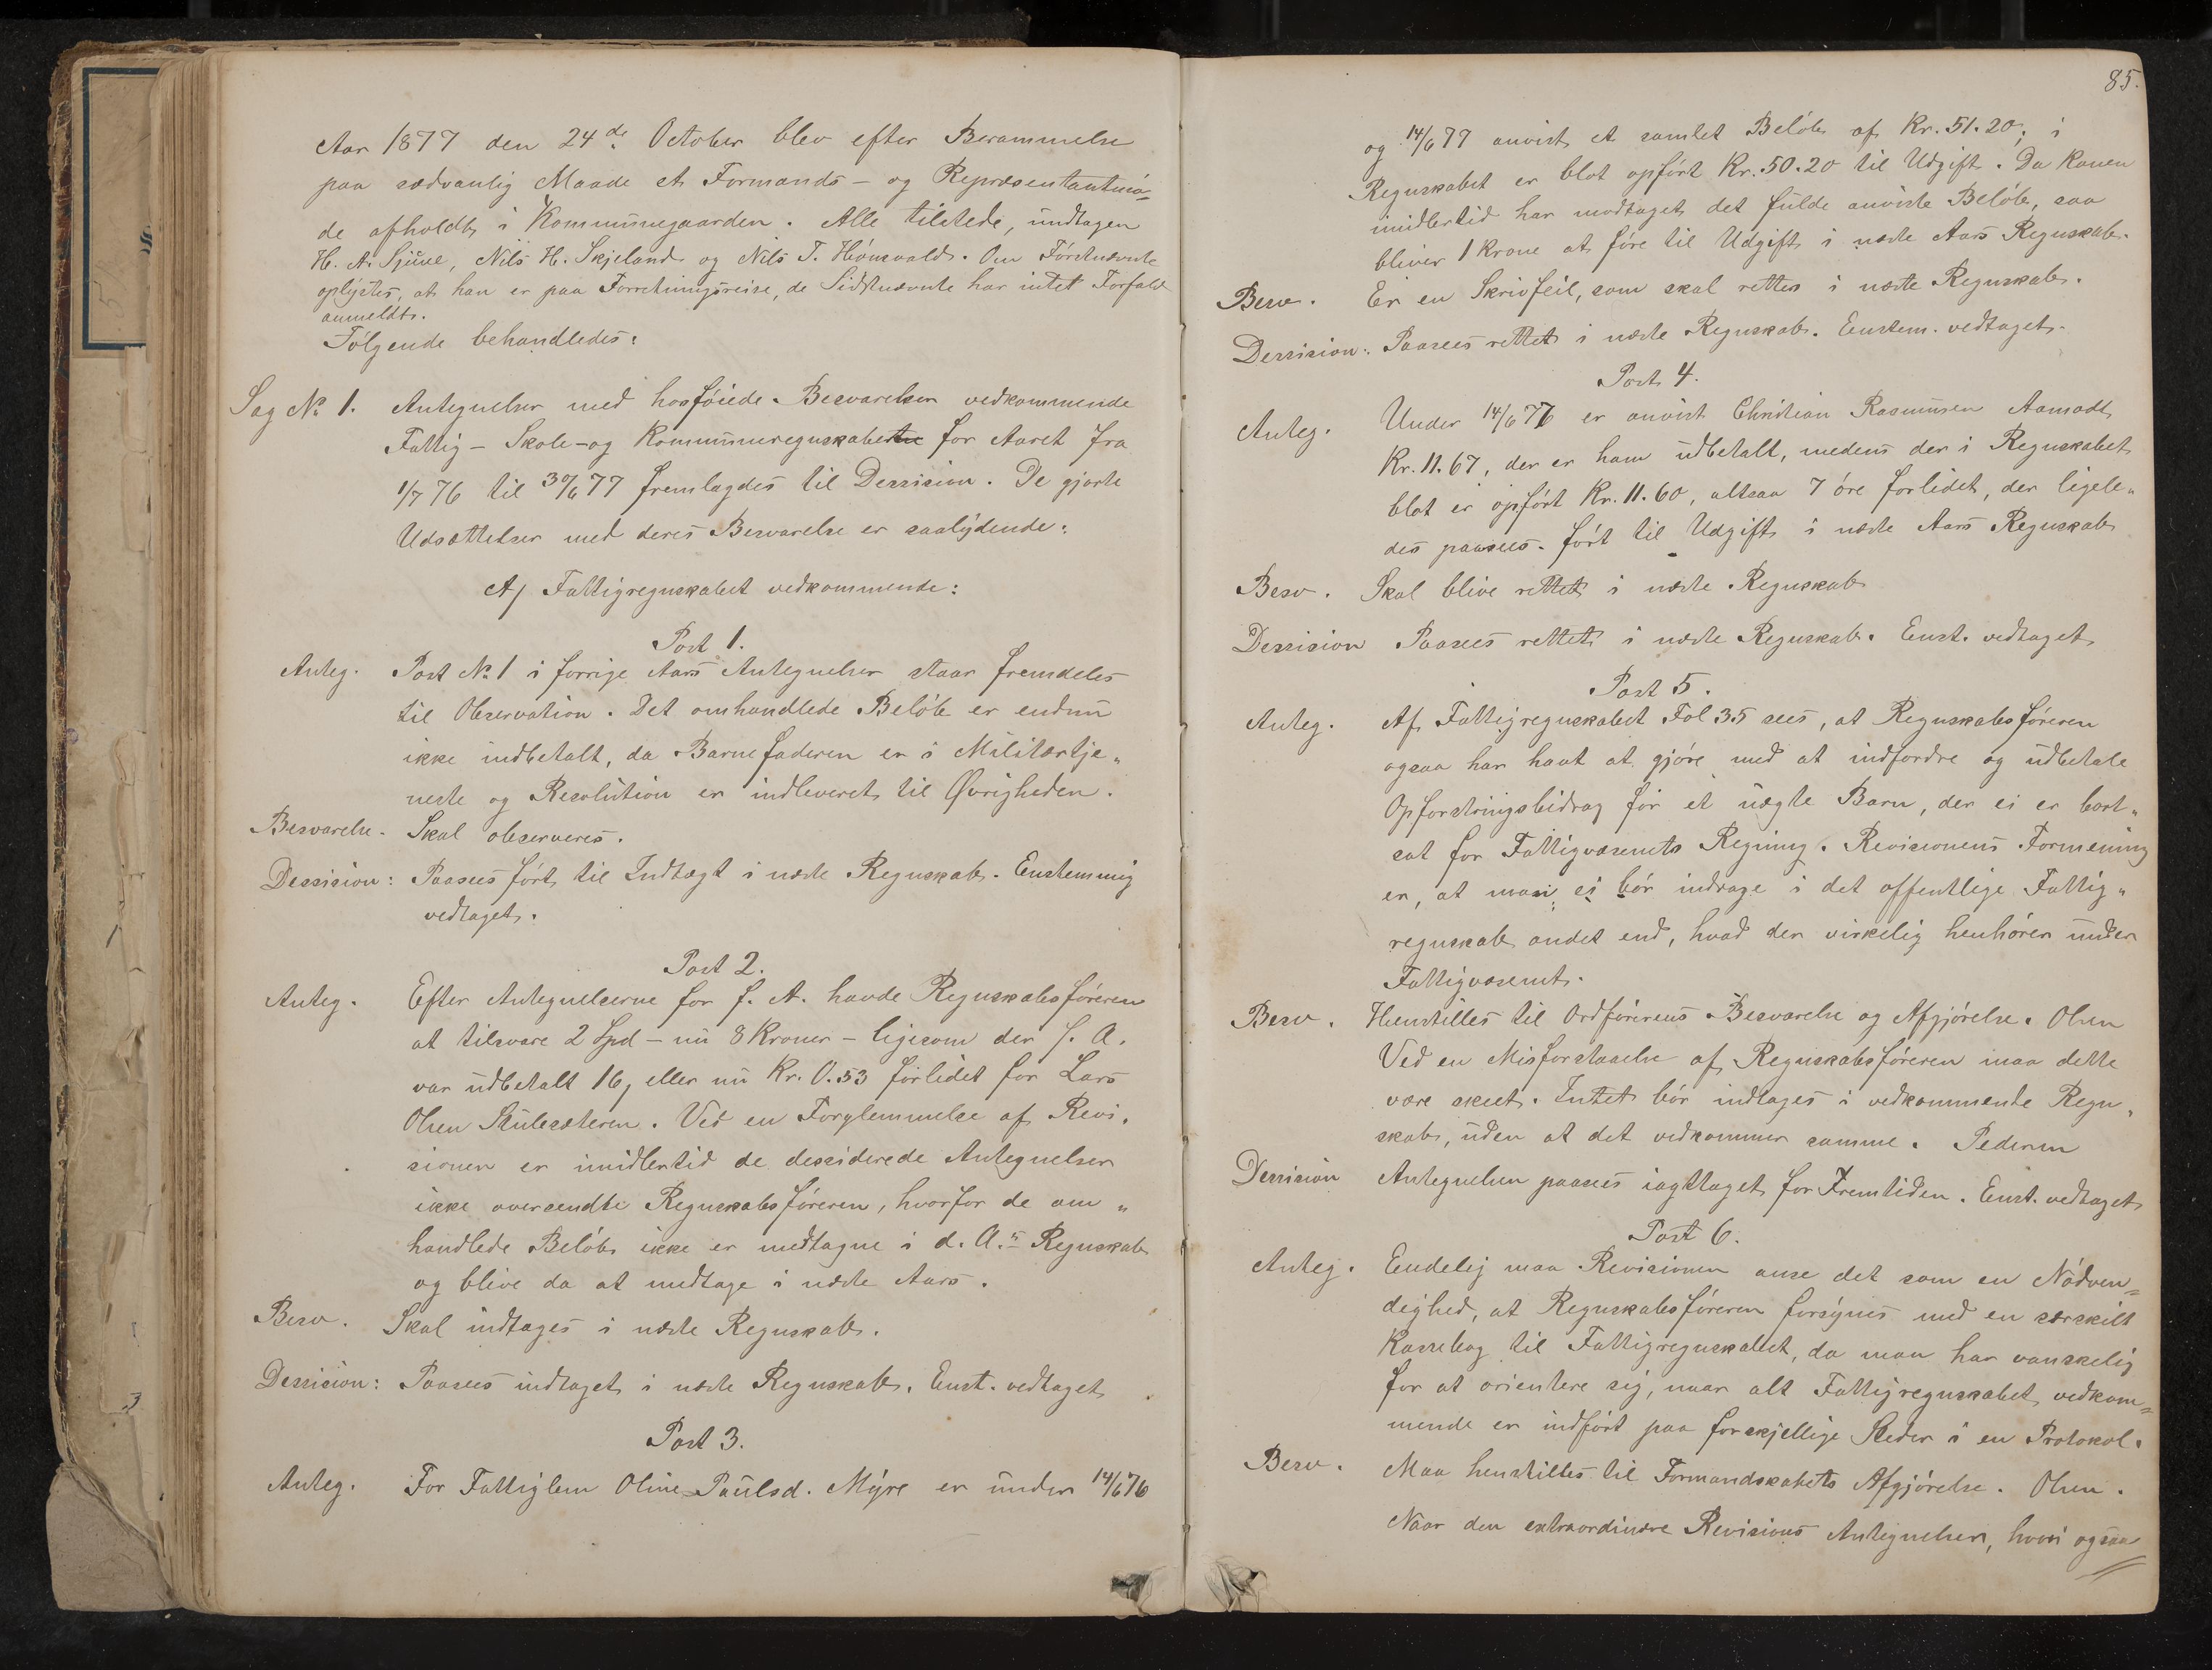 Aar 1877 den 24de October blev efter Berammelse
paa sædvanlig Maade et Formands- og Repræsentantmö-
de afholdt i Kommunegaarden. Alle tilstede, undtagen
H. A. Sjüve, Nils H. Skjeland og Nils T. Hönsvald. Om Förstnævnte
oplystes, at han er paa Forretningsreise, de Sidstnævnte har intet Forfald
anmeldt.
Fölgende behandledes:
Sag No 1. Antegnelser med hosföiede Besvarelser vedkommende
Fattig- Skole- og Kommuneregnskaberne for Aaret fra
1/7 76 til 30/6 77 fremlagdes til Dessision. De gjorte
Udsættelser med deres Besvarelse er saalydende:
A/ Fattigregnskabet vedkommende:
Post 1.
Anteg. Post No 1 i forrige Aars Antegnelser staar fremdeles
til Observation. Det omhandlede Beløb er endnu
ikke indbetalt, da Barnefaderen er i Militærtje„
neste og Resolution er indleveret til Øvrigheden.
Besvarelse. Skal observeres.
Dessision: Paasees fört til Indtægt i næste Regnskab. Enstemmig
vedtaget.
Post 2.
Anteg. Efter Antegnelserne for f. A. havde Regnskabsföreren
at tilsvare 2 Spd - nu 8 Kroner - ligesom der f. A.
var udbetalt 16, eller nu Kr. 0.53 forlidet for Lars
Olsen Skulesæteren. Ved en Forglemmelse af Revi„
sionen er imidlertid de dessiderede Antegnelser
ikke oversendte Regnskabsföreren, hvorfor de om„
handlede Beløb ikke er medtagne i d. A.s Regnskab
og blive da at medtage i næste Aars.
Besv. Skal indtages i næste Regnskab.
Dessision: Paasees indtaget i næste Regnskab. Enst. vedtaget
Post 3.
Anteg. For Fattiglem Oline Paulsd. Myre er under 14/6 76
85.
og 14/6 77 anvist et samlet Beløb af Kr. 51.20; i
Regnskabet er blot opfört Kr. 50.20 til Udgift. Da Konen
imidlertid har modtaget det fulde anviste Beløb, saa
bliver 1 Krone at före til Udgift i næste Aars Regnskab.
Besv. Er en Skrivfeil, som skal rettes i næste Regnskab.
Dessision: Paasees rettet i næste Regnskab. Enstem. vedtaget.
Post 4.
Anteg. Under 14/6 76 er anvist Christian Rasmussen Aamodt
Kr. 11.67, der er ham udbetalt, medens der i Regnskabet
blot er opfört Kr. 11.60, altsaa 7 öre forlidet, der ligele„
des paasees fört til Udgift i næste Aars Regnskab
Besv. Skal blive rettet i næste Regnskab
Dessision Paasees rettet i næste Regnskab. Enst. vedtaget
Post 5.
Anteg. Af Fattigregnskabet Fol 35 sees, at Regnskabsföreren
ogsaa har havt at gjöre med at indfordre og udbetale
Opfostringsbidrag for et uægte Barn, der ei er bort„
sat for Fattigvæsenets Regning. Revisionens Formening
er, at man ei bör inddrage i det offentlige Fattig„
regnskab andet end, hvad der virkelig henhörer under
Fattigvæsenet.
Besv. Henstilles til Ordförerens Besvarelse og Afgjörelse. Olsen
Ved en Misforstaaelse af Regnskabsföreren maa dette
være skeet. Intet bör indtages i vedkommende Regn„
skab, uden at det vedkommer samme. Pedersen
Dessision Antegnelsen paasees iagttaget for Fremtiden. Enst. vedtaget
Post 6.
Anteg. Endelig maa Revisionen anse det som en Nödven„
dighed, at Regnskabsföreren forsynes med en særskilt
Kassebog til Fattigregnskabet, da man har vanskelig
for at orientere sig, naar alt Fattigregnskabet vedkom„
mende er indfört paa forskjellige Steder i en Protokol.
Besv. Maa henstilles til Formandskabets Afgjörelse. Olsen.
Naar den extraordinære Revisions Antegnelser, hvori ogsaa